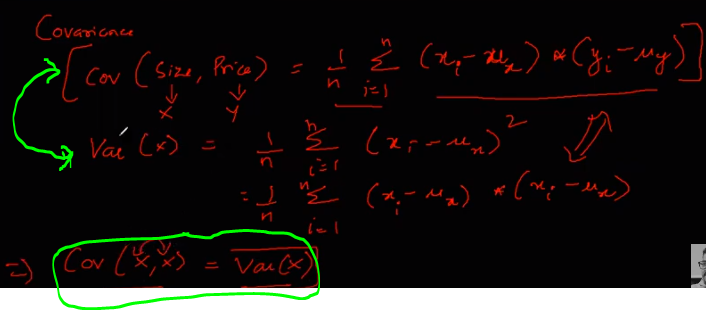 Covariance
[Cov (Size, Price) = 1/n Σ_{i=1}^{n} (x_i - μ_x) * (y_i - μ_y)]
X Y
Var (x) = 1/n Σ_{i=1}^{n} (x_i - μ_x)^2
= 1/n Σ_{i=1}^{n} (x_i - μ_x) * (x_i - μ_x)
=) Cov (x, x) = Var(x)